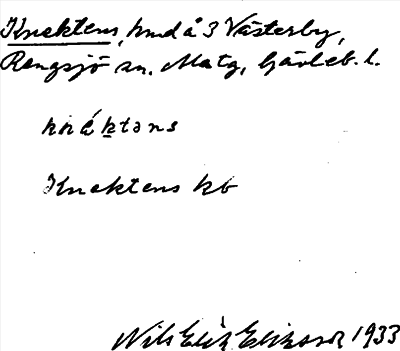 Knektens, hmd å 3 Västerby,
Rengsjö sn. Matg, Gävleb. l.
knäktəns
Knektens kb
Nils Erik Eriksson 1933